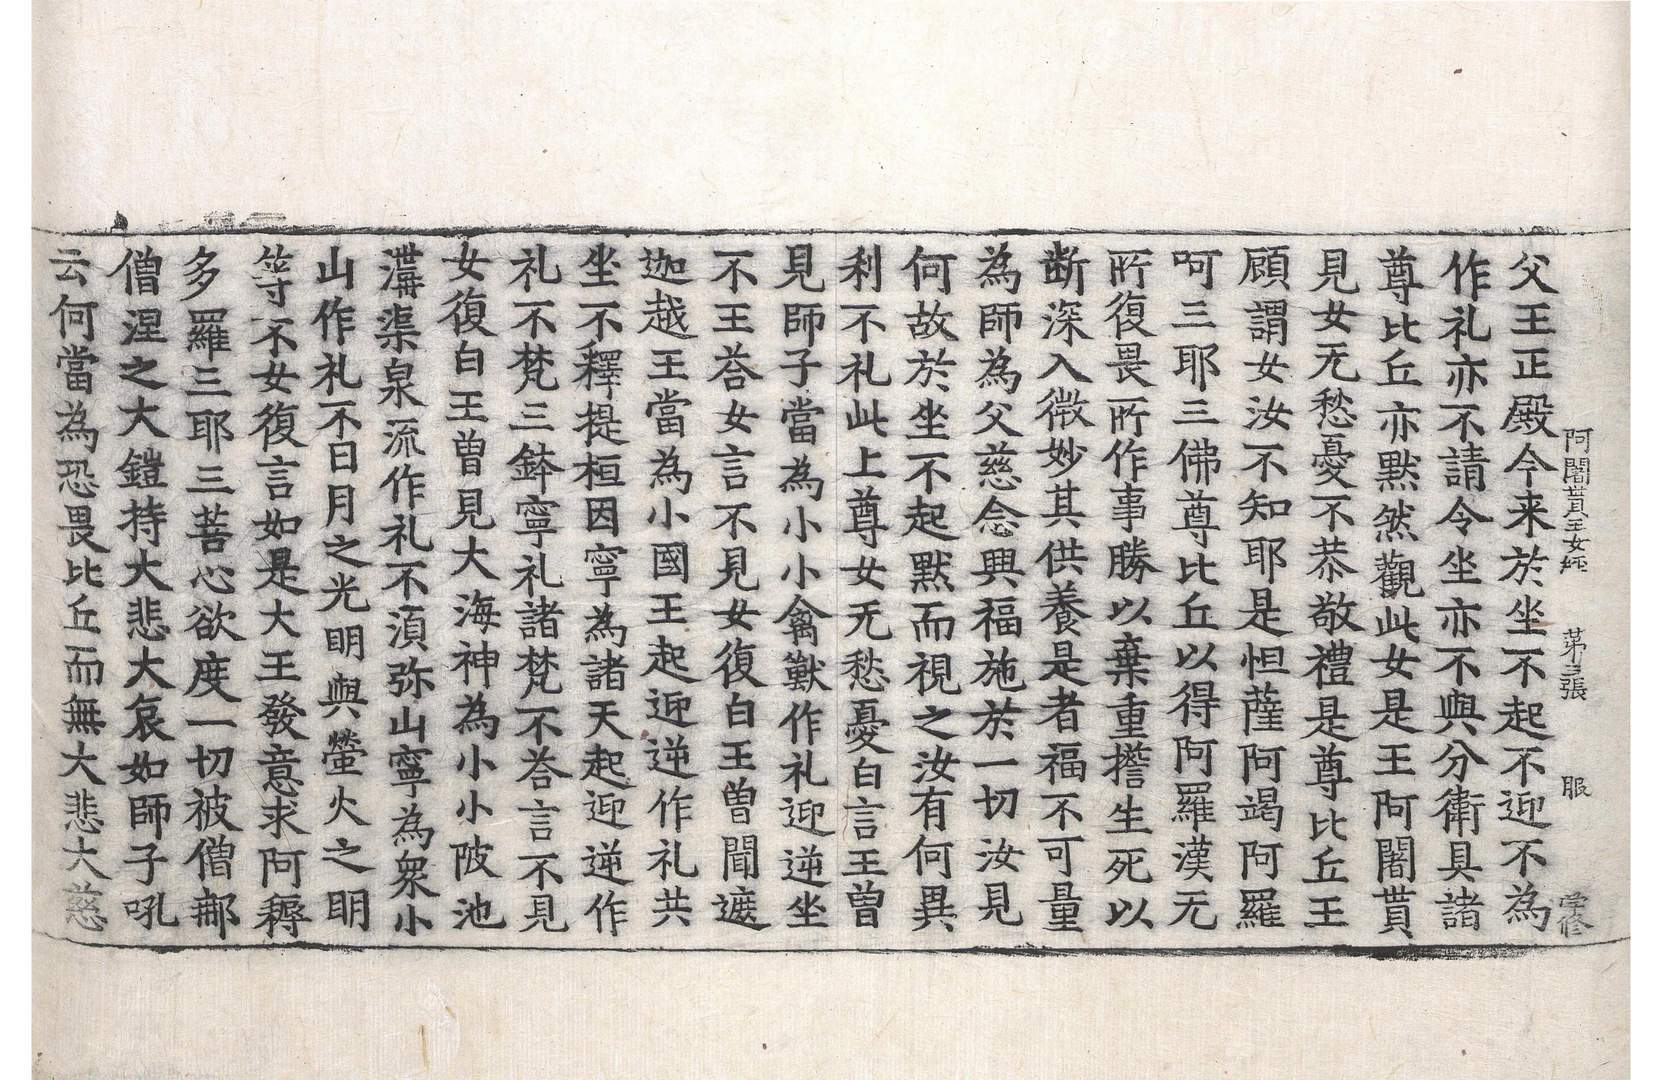 阿闍貰王女經　第三張　服　学修
父王正殿今来於坐不起不迎不為
作礼亦不請令坐亦不與分衛具諸
尊比丘亦默然觀此女是王阿闍貰
見女无愁憂不恭敬禮是尊比丘王
顧謂女汝不知耶是怛薩阿竭阿羅
呵三耶三佛尊比丘以得阿羅漢无
所復畏所作事勝以棄重擔生死以
断深入微妙其供養是者福不可量
為師為父慈念興福施於一切汝見
何故於坐不起默而視之汝有何異
利不礼此上尊女无愁憂白言王曾
見師子當為小小禽獸作礼迎逆坐
不王荅女言不見女復白王曽聞遮
迦越王當為小國王起迎逆作礼共
坐不釋提桓因寧為諸天起迎逆作
礼不梵三鉢寧礼諸梵不荅言不見
女復白王曽見大海神為小小陂池
溝渠泉流作礼不湏弥山寧為衆小
山作礼不日月之光明與螢火之明
等不女復言如是大王發意求阿耨
多羅三耶三菩心欲度一切被僧那
僧涅之大鎧持大悲大哀如師子吼
云何當為恐畏比丘而無大悲大慈